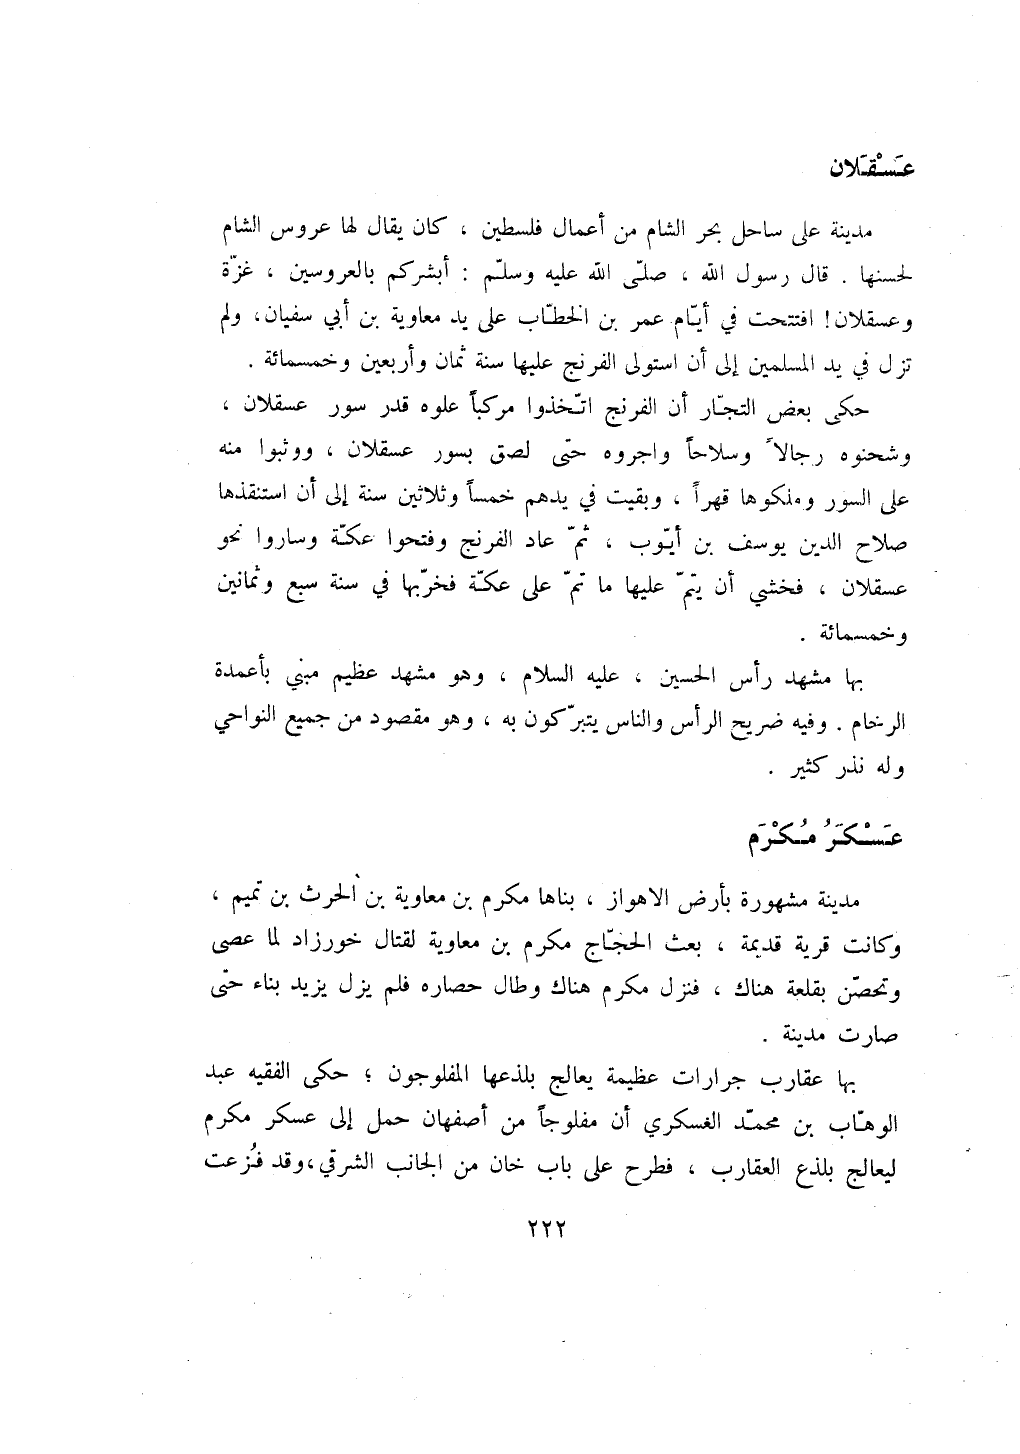 عَسْقَلان
مدينة على ساحل بحر الشام من أعمال فلسطين ، كان يقال لها عروس الشام
لحسنها . قال رسول الله ، صلّى الله عليه وسلّم : أبشركم بالعروسين ، غزّة
وعسقلان! افتتحت في أيّام عمر بن الخطّاب على يد معاوية بن أبي سفيان، ولم
تزل في يد المسلمين إلى أن استولى الفرنج عليها سنة ثمان وأربعين وخمسمائة .
حكى بعض التجّار أن الفرنج اتّخذوا مركباً علوه قدر سور عسقلان ،
وشحنوه رجالاً وسلاحاً واجروه حتّى لصق بسور عسقلان ، ووثبوا منه
على السور وملكوها قهراً ، وبقيت في يدهم خمساً وثلاثين سنة إلى أن استنقذها
صلاح الدين يوسف بن أيّوب ، ثمّ عاد الفرنج وفتحوا عكّة وساروا نحو
عسقلان ، فخشي أن يتمّ عليها ما تمّ على عكّة فخرّبها في سنة سبع وثمانين
وخمسمائة .
بها مشهد رأس الحسين ، عليه السلام ، وهو مشهد عظيم مبني بأعمدة
الرخام . وفيه ضريح الرأس والناس يتبرّكون به ، وهو مقصود من جميع النواحي
وله نذر كثير .
عَسْكَرُ مُكْرَم
مدينة مشهورة بأرض الاهواز ، بناها مكرم بن معاوية بن الحرث بن تميم ،
وكانت قرية قديمة ، بعث الحجّاج مكرم بن معاوية لقتال خورزاد لما عصى
وتحصّن بقلعة هناك ، فنزل مكرم هناك وطال حصاره فلم يزل يزيد بناء حتّى
صارت مدينة .
بها عقارب جرارات عظيمة يعالج بلذعها المفلوجون ؛ حكى الفقيه عبد
الوهّاب بن محمّد العسكري أن مفلوجاً من أصفهان حمل إلى عسكر مكرم
ليعالج بلذع العقارب ، فطرح على باب خان من الجانب الشرقي،وقد فُزعت
٢٢٢